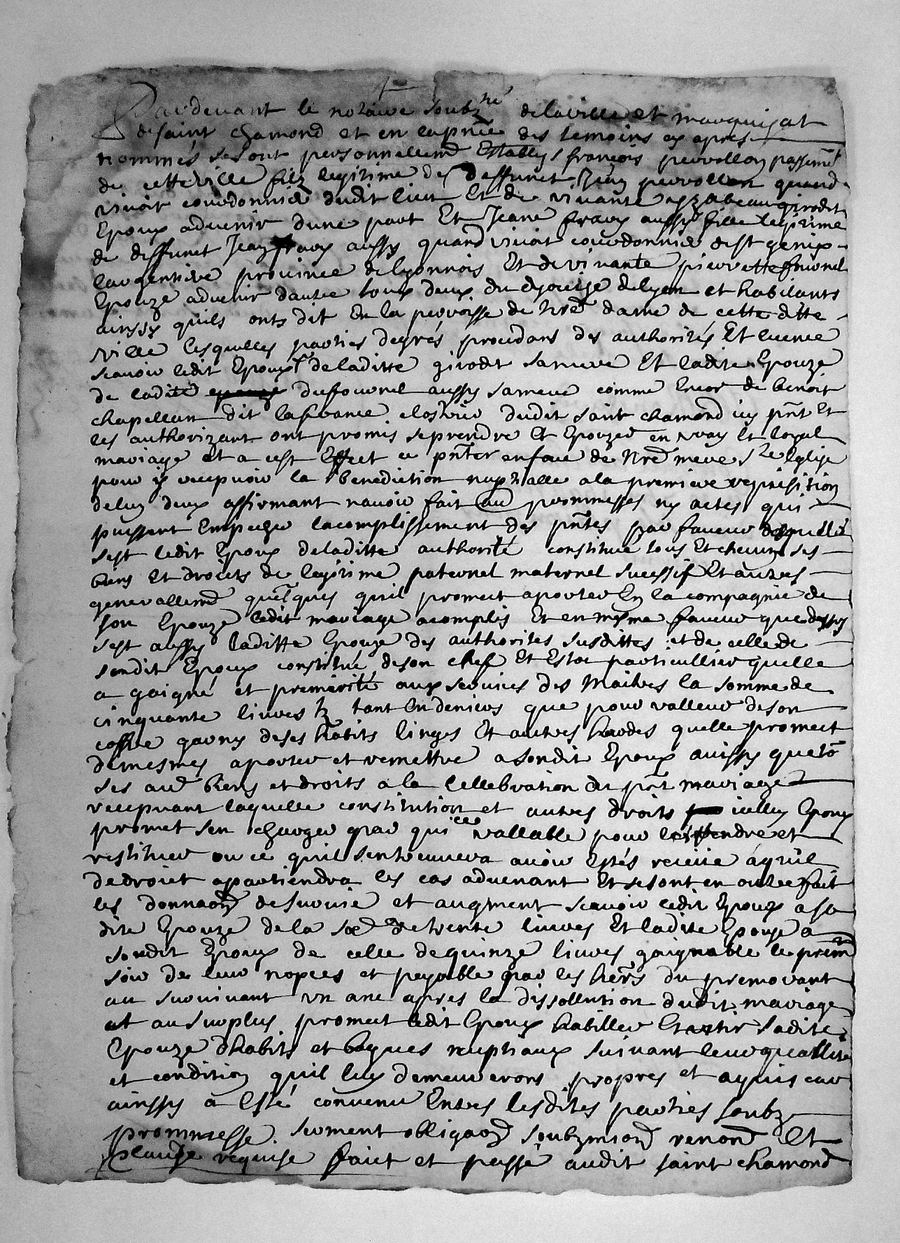 Pardevant le notaire soubz.né de la ville et marquisat
de saint chamond et en la pñce des temoins cy apres
nommés se sont personnellemt establys françois peyrollon passemt
de cette ville filz legitime de deffunct Jean peyrollon quand
vivoit cordonnier dudit lieu et de vivante yzabeau girodet
Epoux advenir d'une part Et Jeane fraux aussy fille legitime
de deffunct Jean fraux aussy quand vivoit cordonnier de st genix
largentiere province de lyonnois Et de vivante pierrette fournel
Epouze advenir d'autre tous deux du diocese de lyon et habitants
ainsy quils ont dit En la parroisse de nre dame de cette ditte
ville lesquelles parties degrés procedans des authorités Et licence
scavoir ledit Epoux de laditte girodet sa mere Et ladite Epouze
de ladite duffournel aussy sa mere comme de benoit
chapellan dit lafrance dudit saint chamond icy pñt Et
les authorizant ont promis se prendre Et Epouzer en vray Et loyal
mariage et a cest Effect ce pñter en face de nre mere ste Eglise
pour y recepvoir la benediction nuptialle a la premiere requisition
de lun deux affirmant navoir fait au promesses ny actes qui
puissent Empecher lacomplissement des pñtes par faveur desquelles
sest ledit Epoux de laditte authorité constitué tous Et chacuns ses
biens Et droicts de legitime paternel maternel sucessif Et autres
generallemt quelques quil promect aporter En la compagnie de
son Epouze ledit mariage acomplis Et en mesme faveur que dessus
sest aussy laditte Epouze des authorités susdittes et de celle de
sondit Epoux constitué de son chef Et Estoc particullier quelle
a gaigné et premerité aux services des maitres la somme de
cinquante livres tz tant En deniers que pour valleur de son
coffre garny de ses habits linges Et autres hardes quelle promect
de mesmes aporter et remettre a sondit Epoux aussy que tō
ses aues biens et droits a la Cellebration du pñt mariage
recepvant laquelle constitution et autres droits icelluy Epoux
promet sen charger par quictce vallable pour les rendre et
restituer ou ce quil se trouvera avoir Estés receüe a qui
de droict apartiendra les cas advenant Et se sont en outre fait
les donnaōns de survie et augment scavoir ledit Epoux a sa
dite Epouze de la soē de trente livres Et ladite Epouze a
sondit Epoux de celle de quinze livres gaignable le premr
soir de leur nopces et payable par les hers du premourant
au survivant un ane apres la dissollution dudit mariage
et au surplus promect ledit Epoux habiller Et vestir sadite
Epouze dhabits et bagues nuptiaux suivant leur quallité
et condition quil luy demeurerons propres et aquis car
ainsy a Esté convenu Entre lesdites parties soubz
prommesse serment obligaōn soubzmison renonon Et
clause requise faict et passé audit saint chamond